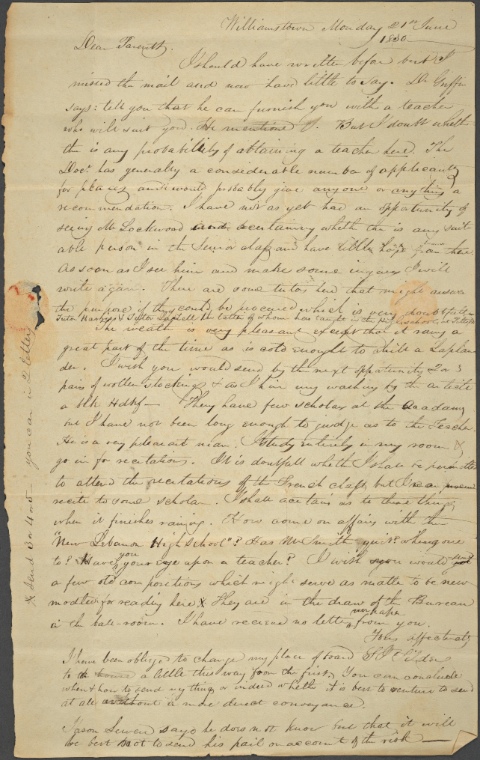 Williamstown Monday 21st June
1830
Dear Parents,
I should have written before but I
missed the mail and now have little to say. Dr Griffin
says: tell you that he can furnish you with a teacher
who will suit you. He mentioned J. But I doubt wheth
the is any probability of obtaining a teacher here. The
Doc. has generally a considerable number of applicants
for places and would probably give anyone or anything a
recommendation. I have not as yet had an oppatunity of
seeing Mr Lockwood and ascertaining wheth the is any suit
able person in the Senior class and have little hope from there
As soon as I see him and make some inquiry I will
write again. There are some tutors here that might answer
the purpose if they could be procured which is very doubtfull
Tutor Hastings & Tutor the latter of whom has taught in the school at
The weath is very pleasant except that it rains a
great part of the time as is cold enough to chill a Laplan
der. I wish you would send by the next oppatunity 2 or 3
pairs of wollen stockings & as I hire my washing by the article
a blk Hdkf— They have few scholars at the Academy
and I have not been long enough to judge as to the Teacher
He is a very pleasant man. I study entirely in my room &
go in for recitation. It is doubtfull wheth I shall be permitted
to attend the recitations of the French class but I can
recite to some scholar. I shall acertain as to these things
when it finishes raining. How come on affairs with the
"New Lebanon High School"? Has Mr Smith quit? where gone
to? Have you your eye upon a teacher? I wish you would send
a few old compositions which might serve as matter to be new
modled for reading here & They are in the draw of the Bureau
in the hall-room. I have recieved no letter nor paper from you.
Yours affectionately
I have been obliged to change my place of board
to the house a little this way from the first. You can conclude
when & how to send my things or indeed wheth it is best to venture to send
at all without a more direct conveyance.
Seward says he does not know but that it will
be best not to send his pail on account of the risk